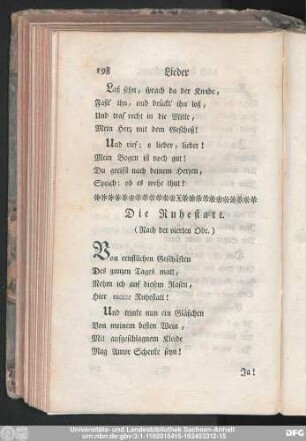 198 Lieder
Laß sehn, sprach da der Knabe,
Faßt' ihn, und drückt' ihn loß,
Und traf recht in die Mitte,
Mein Herz mit dem Geschoß!
Und rief: o lieber, lieber!
Mein Bogen ist noch gut!
Du greifst nach deinem Herzen,
Sprich: ob es wehe thut?
Die Ruhestatt.
(Nach der vierten Ode.)
Von ernstlichen Geschäften
Des ganzen Tages matt,
Nehm ich auf diesem Rasen,
Hier meine Ruhestatt!
Und trinke nun ein Gläschen
Von meinem besten Wein,
Mit aufgeschlagnem Kleide
Mag Amor Schenke seyn!
Ja!
Universitäts- und Landesbibliothek Sachsen-Anhalt
urn:nbn:de:gbv:3:1-1192015415-193453312-15
DFG